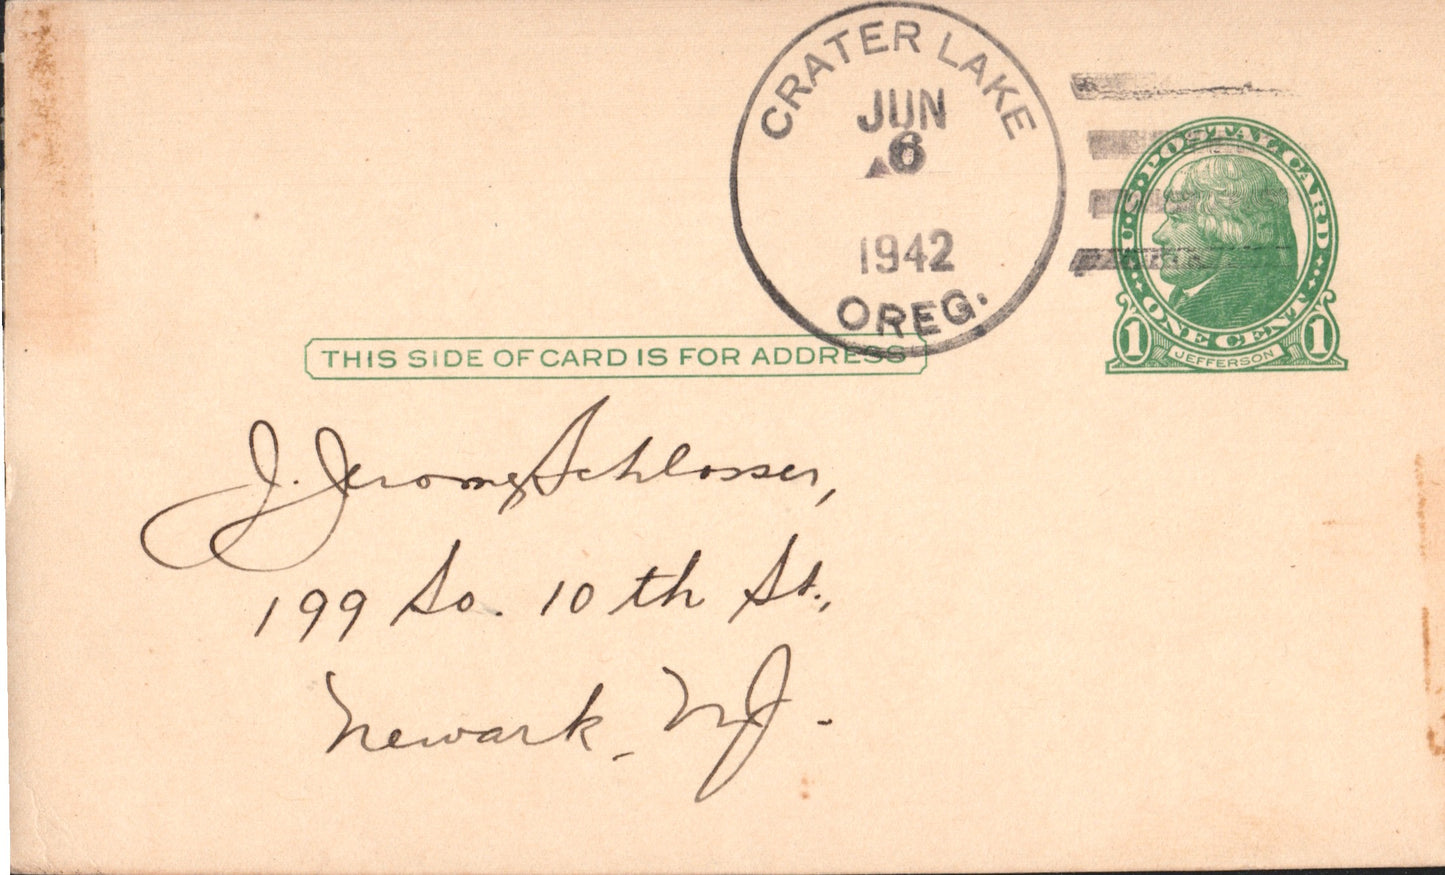 CRATER LAKE
JUN
6
1942
OREG.
U.S. POSTAL CARD
ONE CENT
1 JEFFERSON 1
THIS SIDE OF CARD IS FOR ADDRESS
J. Jerome Schlosser,
199 So. 10th St.,
Newark, NJ.